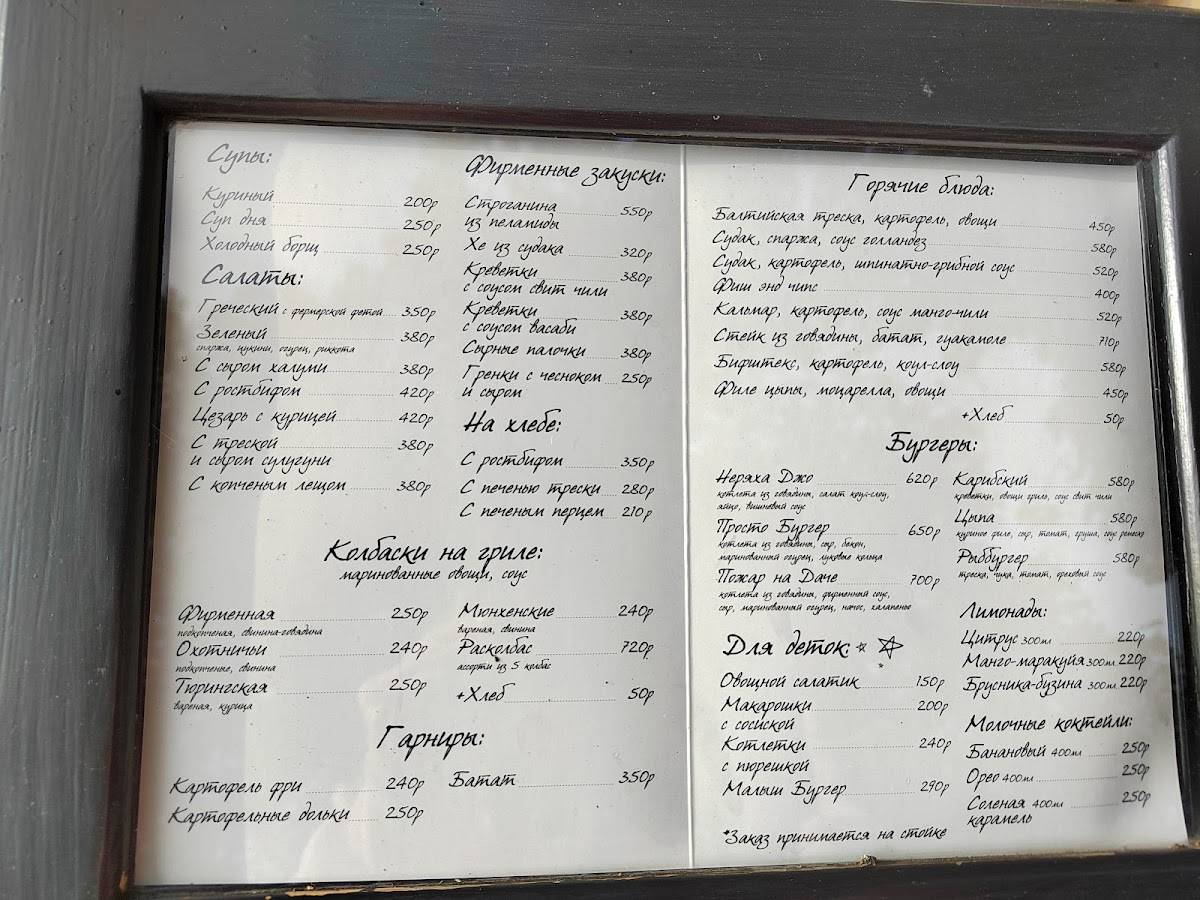 Супы:
Куриный 200р
Суп дня 250р
Холодный борщ 250р
Салаты:
Греческий с фермерской фетой 350р
Зеленый 380р
спаржа, цукини, огурец, рикотта
С сыром халуми 380р
С ростбифом 420р
Цезарь с курицей 420р
С треской 380р
и сыром сулугуни
С копченым лещом 380р
Фирменные закуски:
Строганина 550р
из пеламиды
Хе из судака 320р
Креветки 380р
с соусом свит чили
Креветки 380р
с соусом васаби
Сырные палочки 380р
Гренки с чесноком 250р
и сыром
На хлебе:
С ростбифом 350р
С печенью трески 280р
С печеным перцем 210р
Колбаски на гриле:
маринованные овощи, соус
Фирменная 250р
подкопченая, свинина-говядина
Охотничьи 240р
подкопченые, свинина
Тюрингская 250р
вареная, курица
Мюнхенские 240р
вареная, свинина
Расколбас 720р
ассорти из 5 колбас
+Хлеб 50р
Гарниры:
Картофель фри 240р
Картофельные дольки 250р
Батат 350р
Горячие блюда:
Балтийская треска, картофель, овощи 450р
Судак, спаржа, соус голландез 580р
Судак, картофель, шпинатно-грибной соус 520р
Фиш энд чипс 400р
Кальмар, картофель, соус манго-чили 520р
Стейк из говядины, батат, гуакамоле 710р
Бифштекс, картофель, коул-слоу 580р
Филе цыпы, моцарелла, овощи 450р
+Хлеб 50р
Бургеры:
Неряха Джо 620р
котлета из говядины, салат коул-слоу,
яйцо, вишневый соус
Просто Бургер 650р
котлета из говядины, сыр, бекон,
маринованный огурец, луковые кольца
Пожар на Даче 700р
котлета из говядины, фирменный соус,
сыр, маринованный огурец, начос, халапенью
Карибский 580р
креветки, овощи гриль, соус свит чили
Цыпа 580р
куриное филе, сыр, томат, груша, соус
Рыббургер 580р
треска, чука, томат, ореховый соус
Для деток:
Овощной салатик 150р
Макарошки 200р
с сосиской
Котлетки 240р
с пюрешкой
Малыш Бургер 290р
*Заказ принимается на стойке
Лимонады:
Цитрус 300мл 220р
Манго-маракуйя 300мл 220р
Брусника-бузина 300мл 220р
Молочные коктейли:
Банановый 400мл 250р
Орео 400мл 250р
Соленая 400мл 250р
карамель